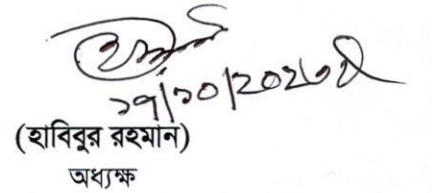 ১৭/১০/২০২৩ইং
(হাবিবুর রহমান)
অধ্যক্ষ